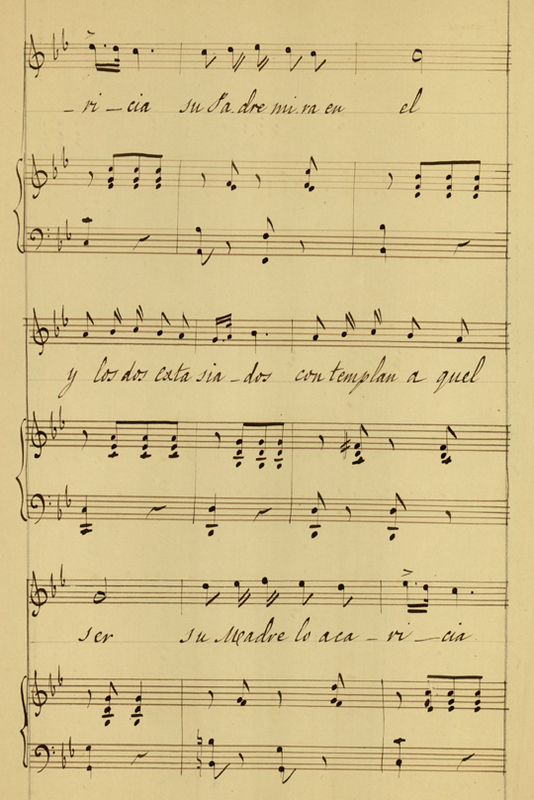 _ ri _ cia su Pa.dre mi.ra en el
y los dos exta sia _ dos con templan a quel
ser su Madre lo aca _ ri _ cia